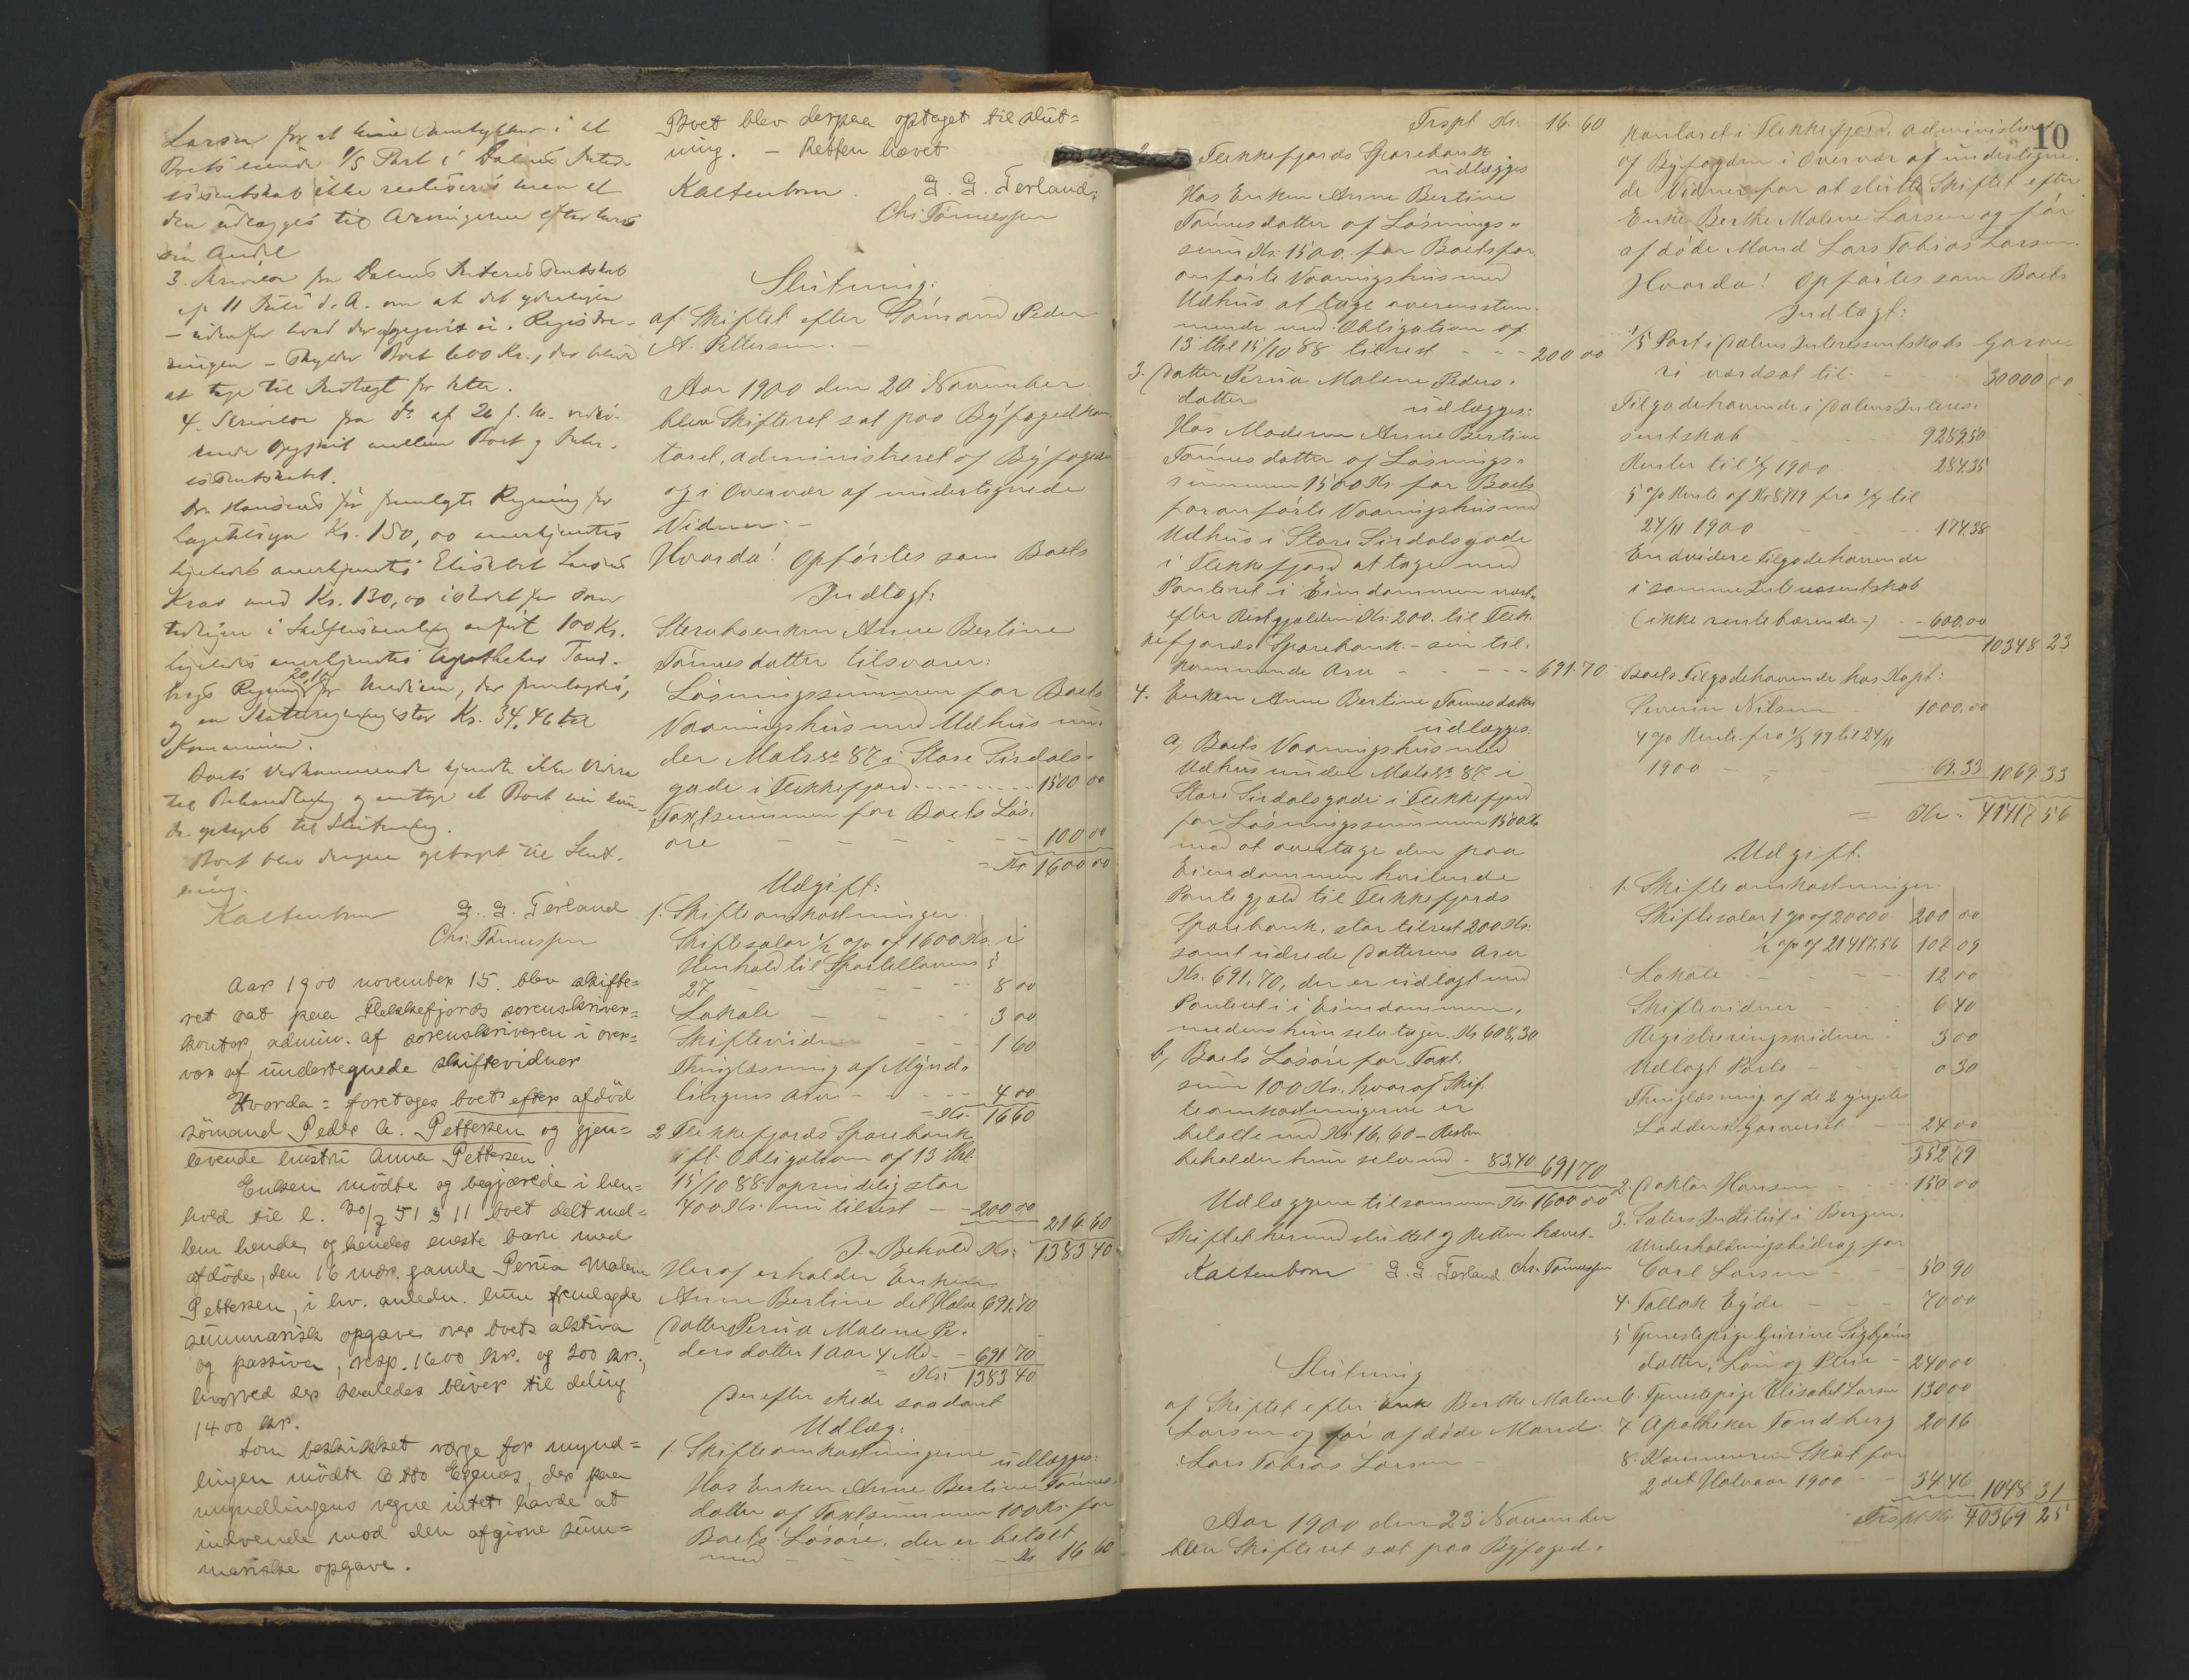 Larsen for at hun samtykker i at
Boets eiende 1/5 Part i Dalens Interes
essentskab ikke realiseres men at
den udlægges til Arvingerne efter hvers
sin Andel
3. Skrivelse fra Dalens Interessentskab
af 11 d. A. om at det yderligere
- udenfor hvad der opgivet i Registre-
ringen - skylder Boet 600 Kr., der bliver
at tage til Indtægt for dette.
4. Skrivelse fra Do af 26 f. M. vedrø-
rende Opgjør mellem Boet og Inter-
essentskabet.
Dr. Hansens fremlagte Regning for
Lægetilsyn Kr. 150,00 anerkjendtes
ligeledes anerkjendtes Elisabet Larsens
Krav med Kr. 130,00 istedet for som
tidligere i anført 100 Kr.
ligeledes anerkjendtes Apotheker Tand-
bergs Regning 20,16 for Medicin, der fremlagdes,
og en Skatteregning stor Kr. 34,46 til
Kommunen.
Boets Vedkommende kjendte ikke videre
til Behandling og antog at Boet nu kun-
de optages til Slutning.
Boet blev derpaa optaget til Slut-
ning.
Kaltenborn G. G. Terland
Chr. Tønnessen
Aar 1900 november 15. blev skifte=
ret sat paa Flekkefjords sorenskriver=
kontor, admin. af sorenskriveren i over=
vær af undertegnede skiftevidner
Hvorda= foretoges boet efter afdød
sömand Peder A. Pettersen og gjen=
levende hustru Anna Pettersen.
Enken mödte og begjærede i hen=
hold til l. 30/7 51 § 11 boet delt mel=
lem hende og hendes eneste barn med
afdöde, den 16 mdr. gamle Petrea Malene
Pettersen, i hv. anledn. hun fremlagde
summarisk opgave over boets aktiva
og passiva, resp. 1600 kr. og 200 kr.,
hvorved der saaledes bliver til deling
1400 kr.
Som beskikket værge for mynd=
lingen mödte Otto Egenes, der paa
myndlingens vegne intet havde at
indvende mod den afgivne sum=
mariske opgave.
Boet blev derpaa optaget til slut=
ning. - Retten hævet
Kaltenborn G. G. Terland.
Chr. Tønnessen
Slutning.
af Skiftet efter Sømand Peder
A. Pettersen. -
Aar 1900 den 20 November
blev Skifteret sat paa Byfogedkon
toret, administreret af Byfogden
og i Overvær af undertegnede
Vidner. -
Hvorda! Opførtes som Boets
Indtægt:
Sterboenken Anne Bertine
Tønnesdatter tilsvarer:
Løsningssummen for Boets
Vaaningshus med Udhus un-
der Matr № 87 i Store Sirdals-
gade i Flekkefjord 1500 00
Taxtsummen for Boets Løs-
øre 100 00
= Kr 1600 00
Udgift:
1. Skifteomkostninger
Skiftesalær 1/2 % af 1600 Kr. i
Henhold til Sportellovens §
27 8 00
Lokale 3 00
Skiftevidner 1 60
Thinglæsning af Mynd-
lingens Arv 4 00
= Kr. 16 60
2 Flekkefjords Sparebank
ifl. Obligation af 13 thl
15/10 88 oprindelig stor
400 Kr. nu tilrest 200 00 216 60
I. Behold Kr: 1383 40
Heraf erholder Enken
Anne Bertine det Halve 691,70
Datter Petrea Malene Pe-
dersdatter 1 Aar 4 Md - 691 70
= Kr: 1383 40
Derefter skede saadant
Udlæg.
1. Skifteomkostningerne udlægges:
Hos Enken Anne Bertine Tønnes-
datter af Taxtsummen 100 Kr. for
Boets Løsøre, der er betalt
med Kr 16 60
Trspt Kr. 16. 60
2. Flekkefjords Sparebank
udlægges
Hos Enken Anne Bertine
Tønnesdatter af Løsnings-
sum Kr. 1500. for Boets for
anførte Vaaningshus med
Udhus at tage overensstem-
mende med Obligation af
13 thl 15/10 88 tilrest 200 00
3. Datter Petrea Malene Peders-
datter
udlægges:
Hos Moderen Anne Bertine
Tønnesdatter af Løsnings-
summen 1500 Kr for Boets
foranførte Vaaningshus med
Udhus i Store Sirdalsgade
i Flekkefjord at tage med
Panteret i Eiendommen næst-
efter Restgjælden Kr. 200. til Flek-
kefjords Sparebank. - sin til-
kommende Arv 691.70.
4. Enken Anne Bertine Tønnesdatter
udlægges:
a, Boets Vaaningshus med
Udhus under Matr № 87 i
Store Sirdalsgade i Flekkefjord
for Løsningssummen 1500 Kr
mod at overtage den paa
Eiendommen hvilende
Pantegjæld til Flekkefjords
Sparebank, stor tilrest 200 Kr.
samt udrede Datterens Arv
Kr. 691,70, der er udlagt med
Panteret i Eiendommen,
medens hun selv tager Kr 608,30
b, Boets Løsøre for Taxt-
sum 100 Kr. hvoraf Skif-
teomkostningerne er
betalte med Kr. 16,60 - Resten
beholder hun selv med - 83,40 691 70
Udlæggene tilsammen Kr. 1600 00
Skiftet hermed sluttet og Retten hævet.
Kaltenborn G. G. Terland. Chr. Tønnessen
Slutning
af Skiftet efter Enke Berthe Malene
Larsen og før afdøde Mand
Lars Tobias Larsen -
Aar 1900 den 23 November
blev Skifteret sat paa Byfoged-
10
kontoret i Flekkefjord, administreret
af Byfogden i Overvær af undertegne-
de Vidner for at slutte Skiftet efter
Enke Berthe Malene Larsen og før
afdøde Mand Lars Tobias Larsen.
Hvorda! Opførtes som Boets
Indtægt:
1/5 Part i Dalens Interessentskabs Garve-
ri værdsat til 30000 00
Tilgodehavende i Dalens Interes-
sentskab 9289.50
Renter til 1/7 1900 284.35
5 % Rente af Kr 8719 fra 1/7 til
24/11 1900 174.38
Endvidere Tilgodehavende
i samme Interessentskab
(ikke rentebærende -) - 600.00
10348 23
Boets Tilgodehavende hos Kapt:
Severin Nilsen 1000.00
4 % Rente fra 1/3 99 til 24/11
1900 69.33 1069.33
= Kr. 41417 56
Udgift:
1. Skifteomkostninger
Skiftesalær 1 % af 20000 200 00
1/2 % af 21417.56 107 09
Lokale 12 00
Skiftevidner 6 40
Registreringsvidner 3 00
Udlagt Porto 0 30
Thinglæsning af de 2 yngstes
Lodder i Garveriet 24 00
352 79
2. Doktor Hansen 150 00
3. Institut i Bergen,
Underholdningsbidrag for
Carl Larsen 50 90
4. Tallak Eyde 70 00
5 Tjenestepige Gurine Sigbjørns
datter, Løn og Pleie - 240 00
6. Tjenestepige Elisabet Larsen 130 00
7 Apotheker Tandberg 20 16
8. Kommunen Skat for
2det Halvaar 1900 34 46 1048 31
Trspt Kr. 40369 25